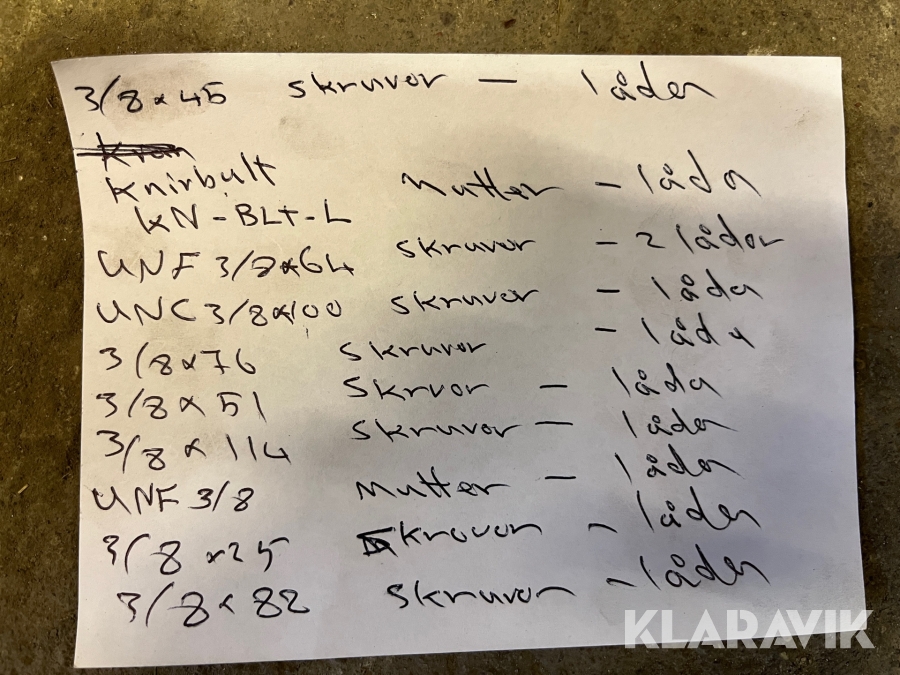 3/8 x 45 skruvor — låda
Knirbult
KN-BLT-L Mutter - låda
UNF 3/8 x 64 skruvor - 2 lådor
UNC 3/8 x 100 skruvor - låda
3/8 x 76 skruvor - låda
3/8 x 51 skrvor - låda
3/8 x 114 skruvor - låda
UNF 3/8 Mutter - låda
3/8 x 25 skruvor - låda
3/8 x 82 skruvor - låda
KLARAVIK